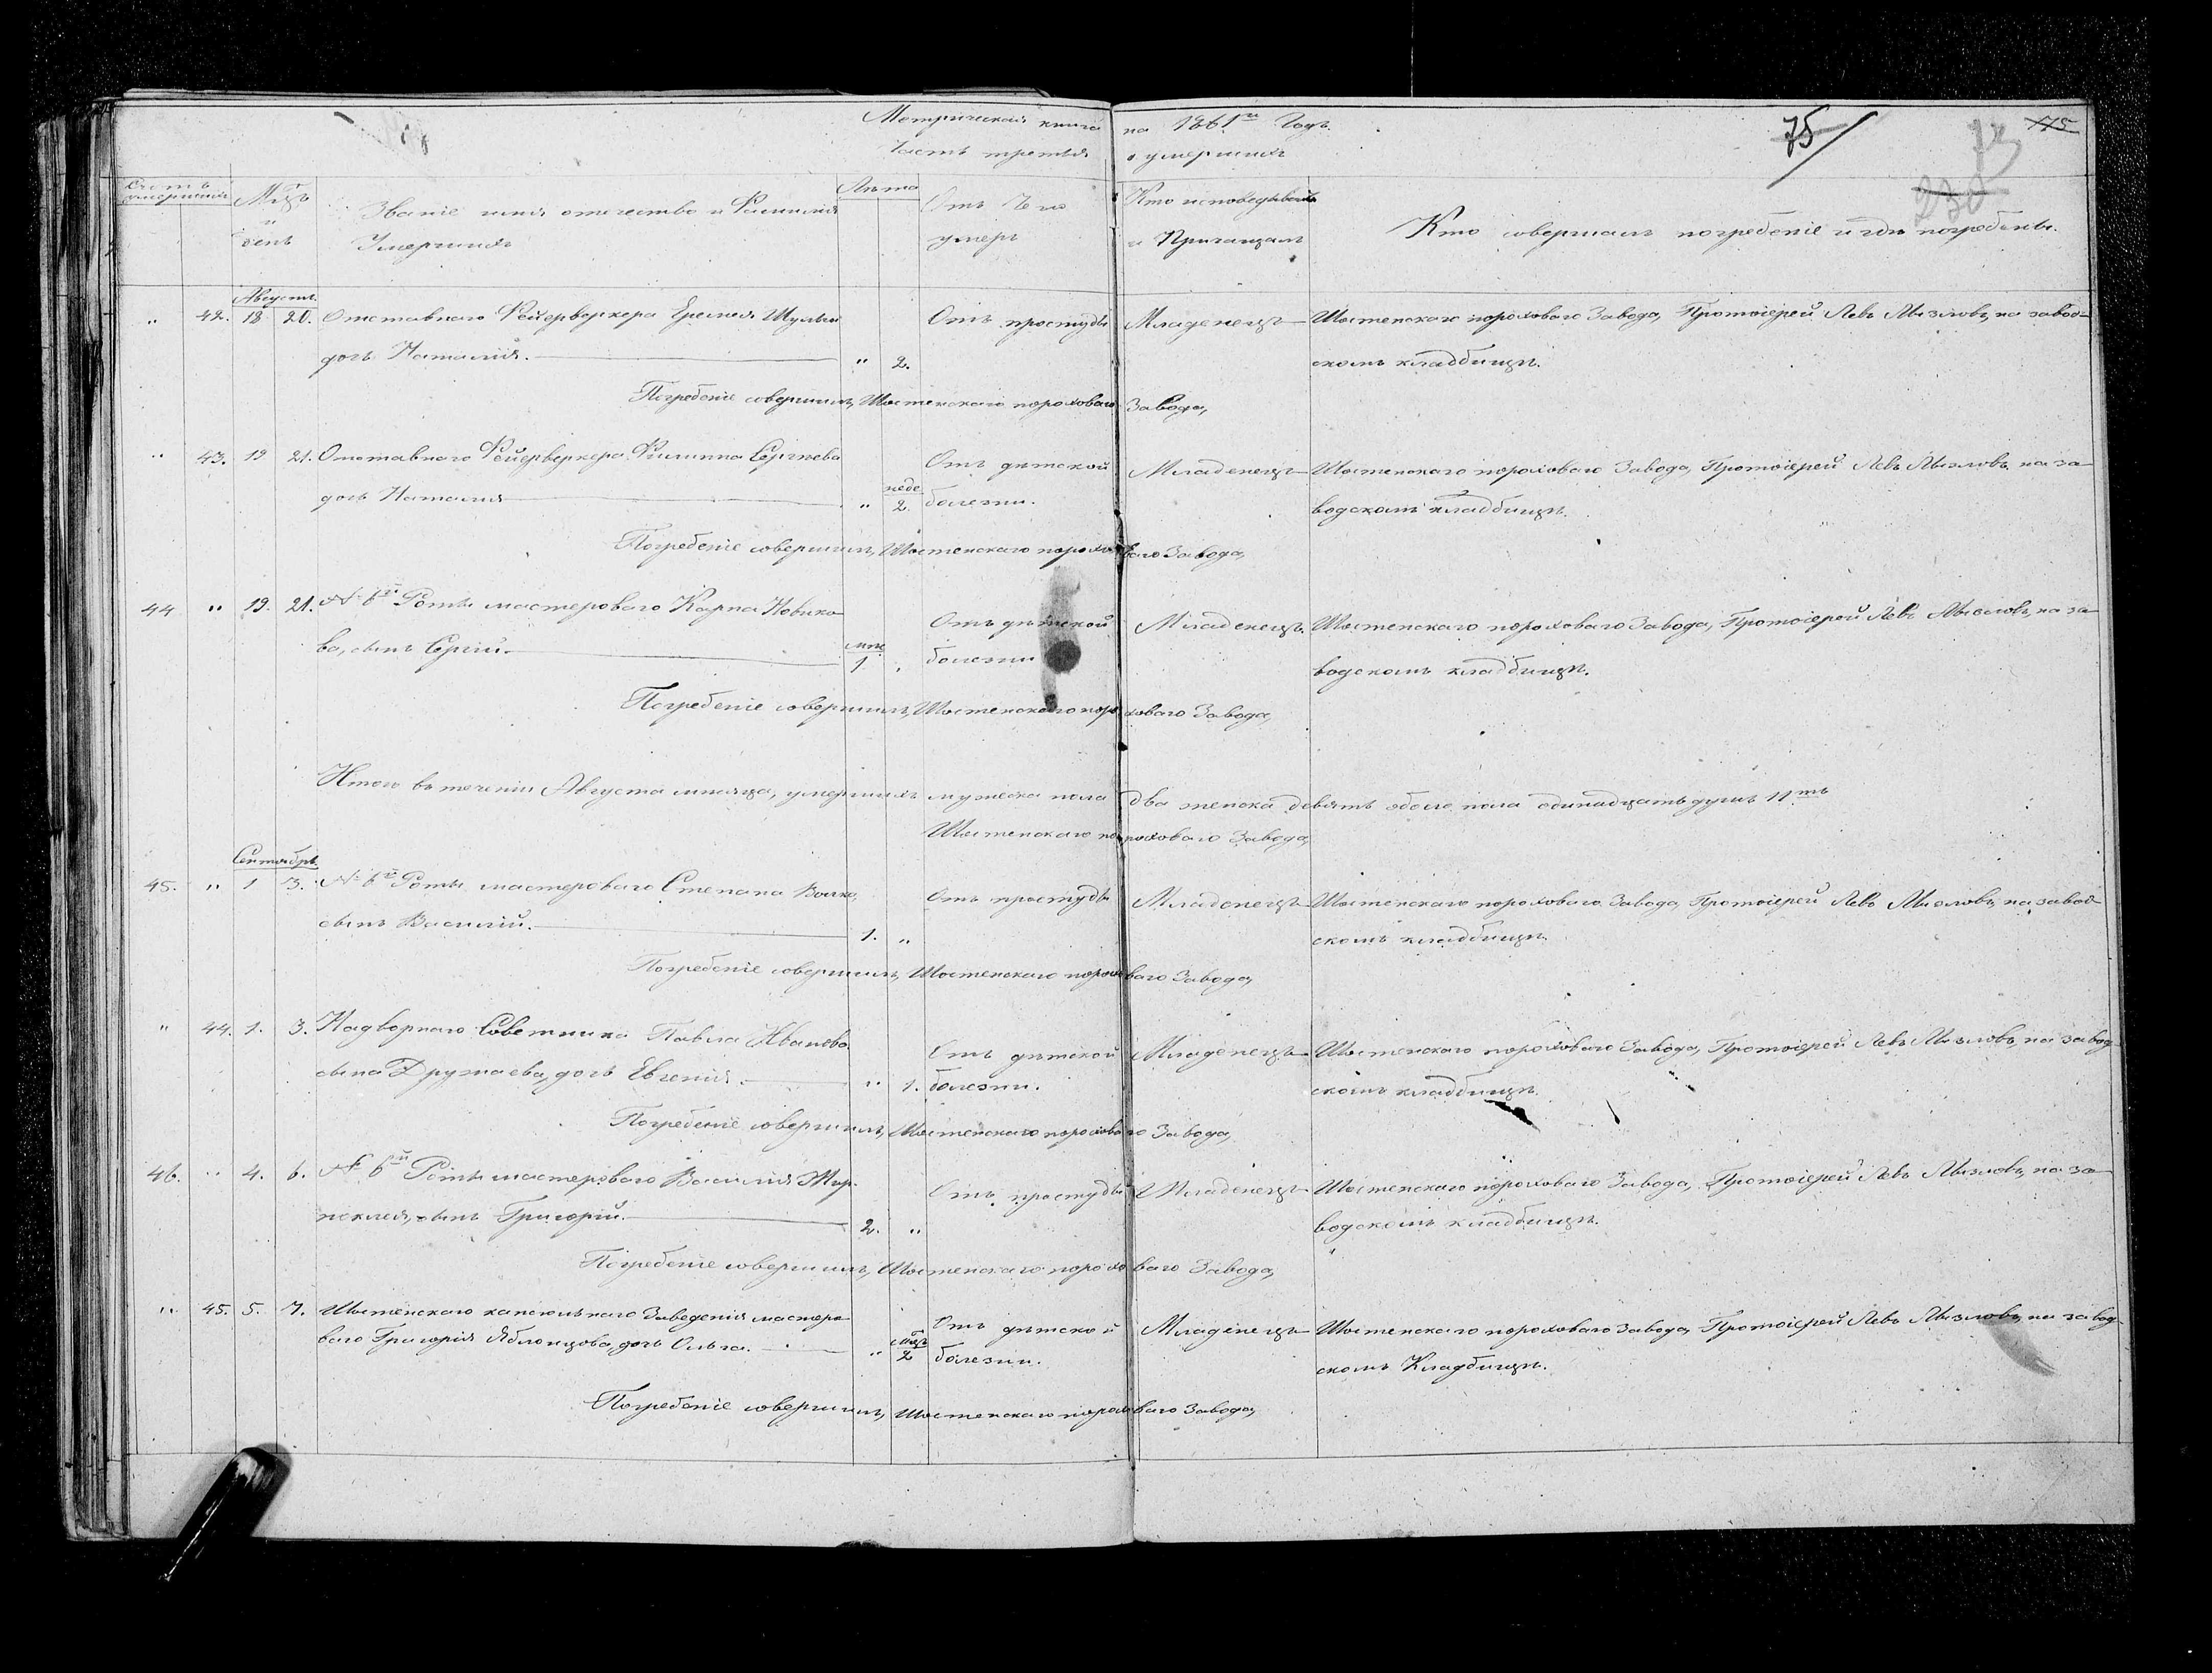 Метрическая книга на 1861й Годъ.
Часть третья о умершихъ
75
175
230
Счетъ умершихъ
Мцъ и день
Званіе имя отчество и Фамилія Умершихъ
Лѣта
Отъ Чего умеръ
Кто исповедывалъ и Причащалъ
Кто совершалъ погребеніе и гдѣ погребены.
Августъ.
" 42. 18 20. Отставнаго Фейерверкера Еремея Отъ простуды Младенецъ Шостенскаго пороховаго Завода, Протоіерей Левъ Мызловъ, на завод-
дочь Наталія. " 2. скомъ кладбищѣ.
Погребеніе совершилъ, Шостенскаго пороховаго Завода,
" 43. 19 21. Отставнаго Фейерверкера Филиппа Сергѣева Отъ дѣтской Младенецъ Шостенскаго пороховаго Завода, Протоіерей Левъ Мызловъ, на за-
дочь Наталія " неде 2. болезни. водскомъ кладбищѣ.
Погребеніе совершилъ, Шостенскаго пороховаго Завода,
44 " 19. 21. № 6й Роты мастероваго Карпа Новико- Отъ дѣтской Младенецъ. Шостенскаго пороховаго Завода, Протоіерей Левъ Мызловъ, на за-
ва, сынъ Сергій. 1 " болезни водскомъ кладбищѣ.
Погребеніе совершилъ, Шостенскаго пороховаго Завода,
Итого въ теченіи Августа мѣсяца, умершихъ мужеска пола два женска девять обоего пола одинадцать душъ 11ть
Шостенскаго пороховаго Завода,
Сентябрь
45. " 1 3. № 6й Роты мастероваго Степана Отъ простуды Младенецъ Шостенскаго пороховаго Завода, Протоіерей Левъ Мызловъ, на завод-
сынъ Василій. 1. " скомъ кладбищѣ.
Погребеніе совершилъ, Шостенскаго пороховаго Завода,
" 44. 1. 3. Надворнаго Советника Павла Иванова Отъ дѣтской Младенецъ Шостенскаго пороховаго Завода, Протоіерей Левъ Мызловъ, на завод-
сына Дружаева, дочь Евгенія. " 1. болезни. скомъ кладбищѣ.
Погребеніе совершилъ, Шостенскаго пороховаго Завода,
46. " 4. 6. № 6й Роты мастероваго Василія Отъ простуды Младенецъ Шостенскаго пороховаго Завода, Протоіерей Левъ Мызловъ, на за-
сынъ Григорій. 2. " водскомъ кладбищѣ.
Погребеніе совершилъ, Шостенскаго пороховаго Завода,
" 45. 5. 7. Шостенскаго капсюльнаго Заведенія мастеро- Отъ дѣтской Младенецъ Шостенскаго пороховаго Завода, Протоіерей Левъ Мызловъ, на завод-
ваго Григорія Яблонцова, дочь Ольга. " мцъ 2 болезни. скомъ Кладбищѣ.
Погребеніе совершилъ, Шостенскаго пороховаго Завода,